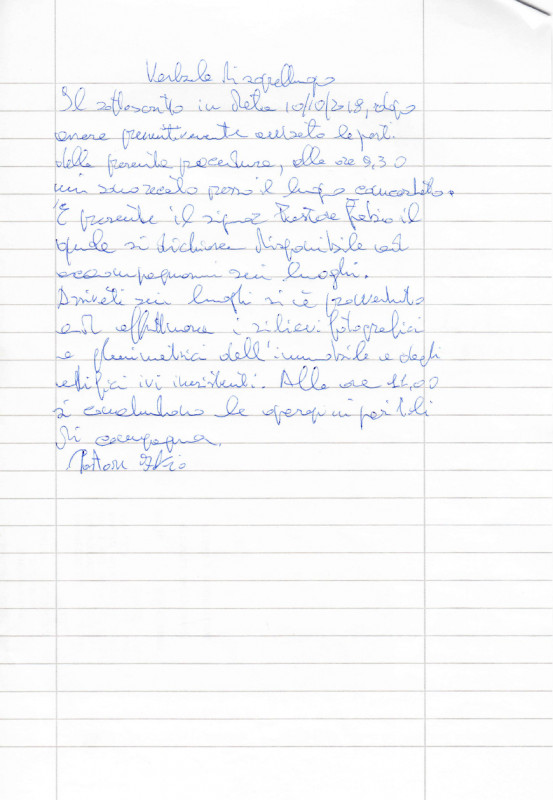 Verbale di sopralluogo
Il sottoscritto in data 10/10/2018, dopo
avere preventivamente avvisato le parti
della presente procedura, alle ore 9,30
mi sono recato presso il luogo concordato.
È presente il signor Pastore Fabio il
quale si dichiara disponibile ad
accompagnarmi sui luoghi.
Arrivati sui lughi si è provveduto
ad effettuare i rilievi fotografici
e planimetrici dell'immobile e degli
edifici ivi insistenti. Alle ore 11,00
si concludono le operazioni peritali
di campagna.
Pastore Fabio